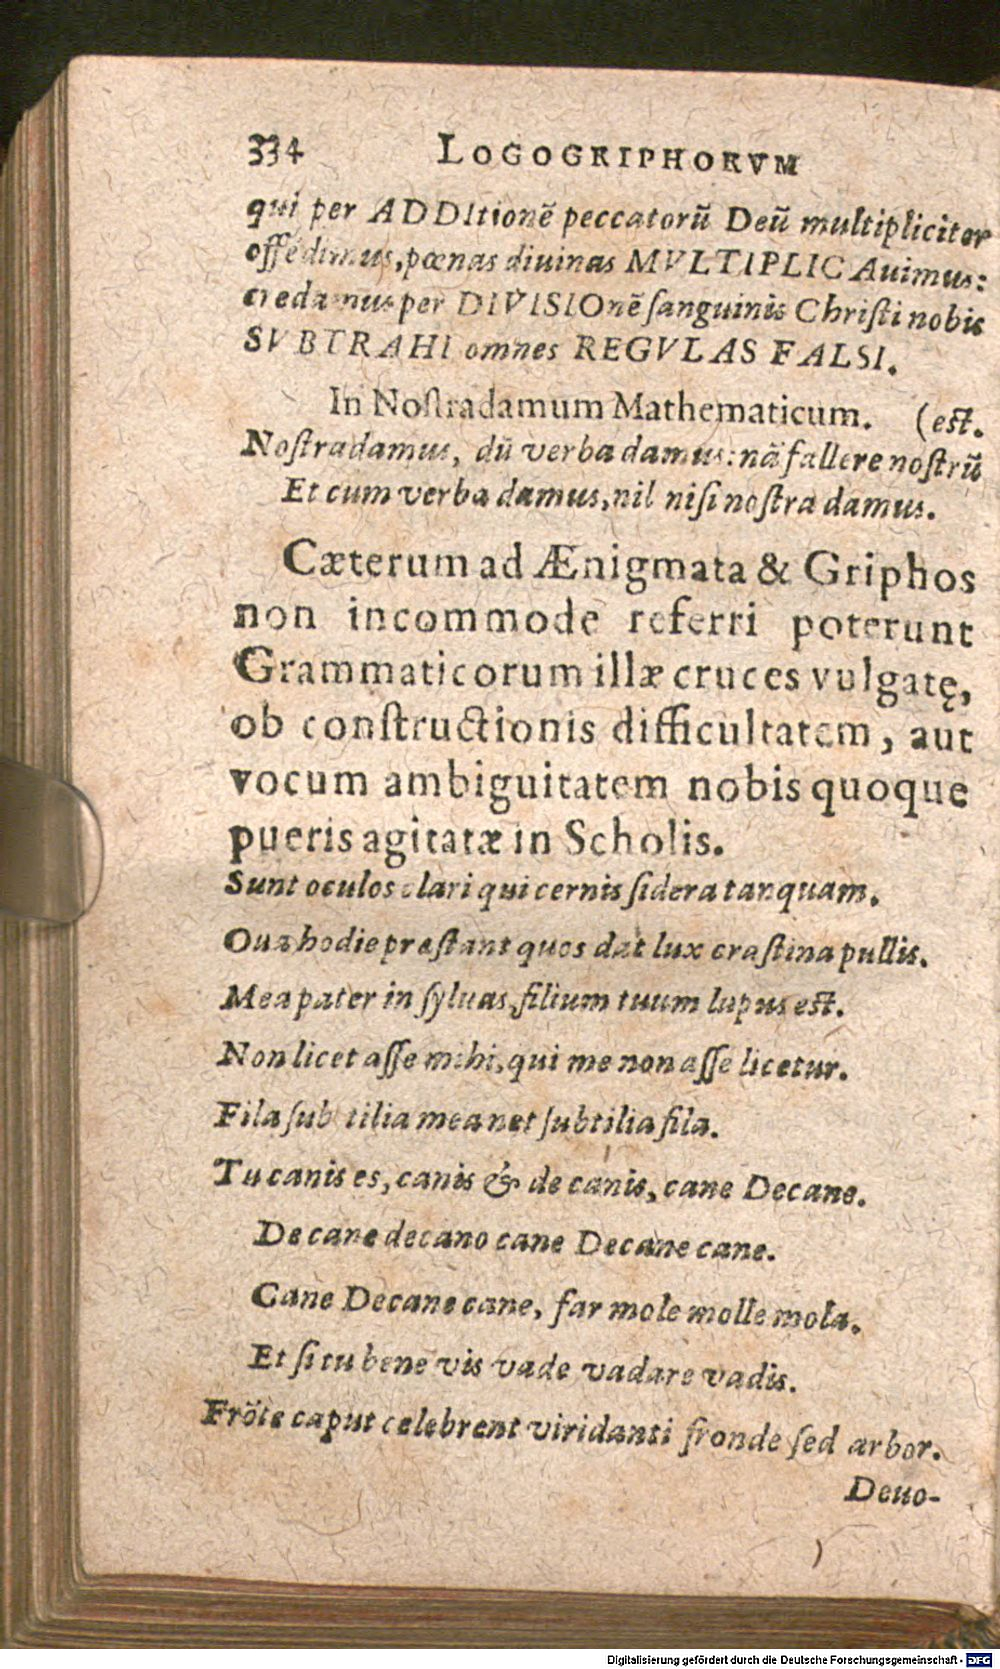 334 LOGOGRIPHORVM
qui per ADDItionẽ peccatorũ Deũ multipliciter
offẽdimus, pœnas diuinas MVLTIPLICAuimus:
credamus per DIVISIOnẽ ſanguinis Chriſti nobis
SVBTRAHI omnes REGVLAS FALSI.
In Noſtradamum Mathematicum. (eſt.
Noſtradamus, dũ verba damus: nã fallere noſtrũ
Et cum verba damus, nil niſi noſtra damus.
Cæterum ad Ænigmata & Griphos
non incommode referri poterunt
Grammaticorum illæ cruces vulgatę,
ob conſtructionis difficultatem, aut
vocum ambiguitatem nobis quoque
pueris agitatæ in Scholis.
Sunt oculos clari qui cernis ſidera tanquam.
Quæ hodie præſtant quos dat lux craſtina pullis.
Mea pater in ſyluas, filium tuum lupus eſt.
Non licet aſſe mihi, qui me non aſſe licetur.
Fila ſub tilia mea net ſubtilia fila.
Tu canis es, canis & de canis, cane Decane.
De cane decano cane Decane cane.
Cane Decane cane, far mole molle mola.
Et ſi tu bene vis vade vadare vadis.
Frõte caput celebrent viridanti fronde ſed arbor.
Deuo-
Digitalisierung gefördert durch die Deutsche Forschungsgemeinschaft - DFG